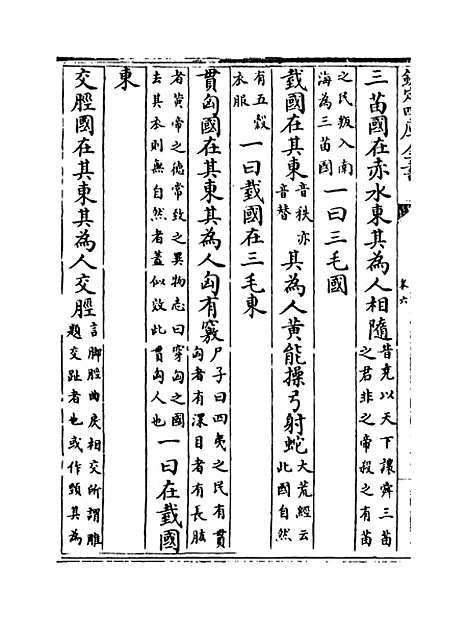 欽定四庫全書
卷六
三苗國在赤水東其為人相隨昔堯以天下讓舜三苗之君非之帝殺之有苗
之民叛入南海為三苗國一曰三毛國
臷國在其東音秩亦音替其為人黃能操弓射蛇大荒經云此國自然
有五穀衣服一曰臷國在三毛東
貫匈國在其東其為人匈有竅尸子曰四夷之民有貫匈者有深目者有長肱
者黄帝之德常致之異物志曰穿匈之國去其衣則無自然者蓋似效此貫匈人也一曰在臷國
東
交脛國在其東其為人交脛言脚脛曲戾相交所謂雕題交趾者也或作頸其為